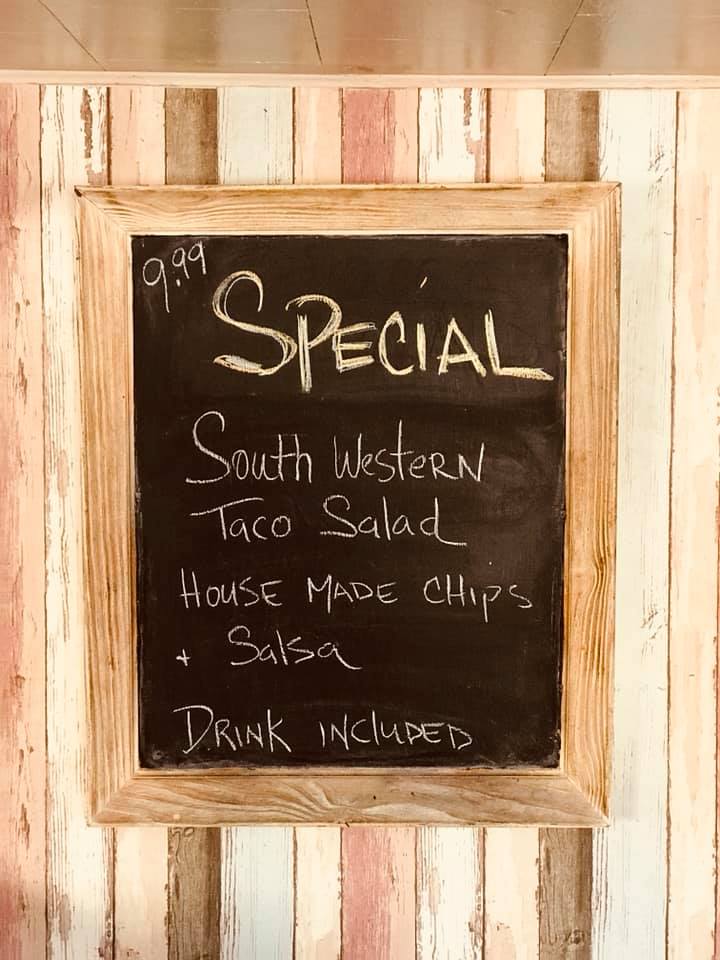 9.99
SPECIAL
South Western
Taco Salad
HOUSE MADE CHIPS
+ Salsa
DRINK INCLUDED